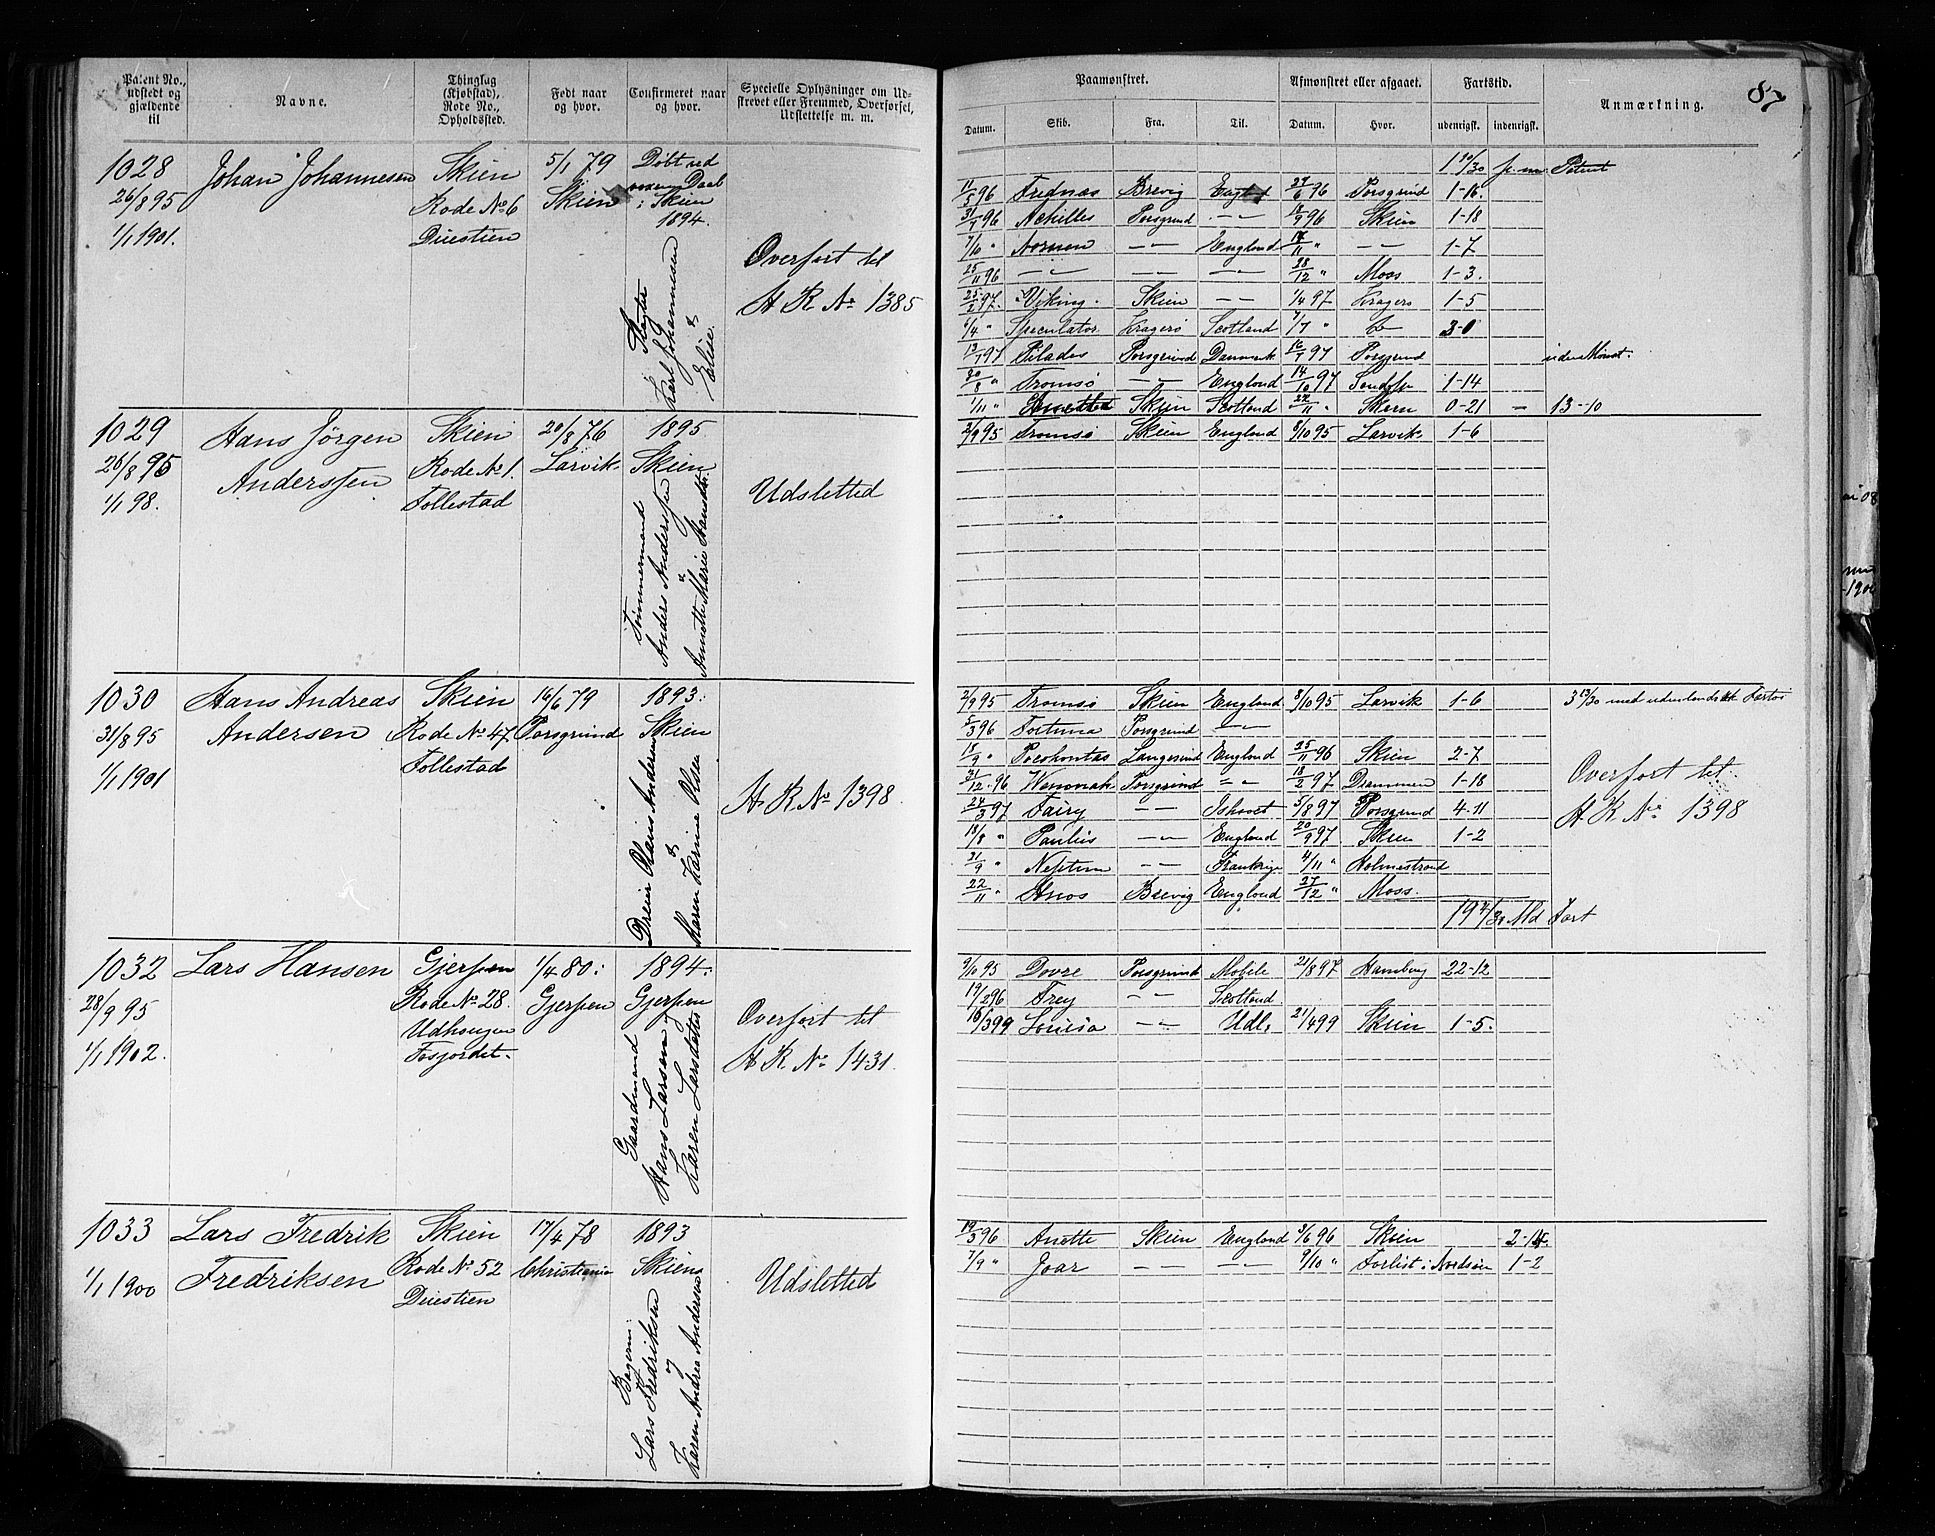 Patent No., udstedt og gjældende til
Navne.
Thinglag (Kjøbstad), Rode No., Opholdssted.
Født naar og hvor.
Confirmeret naar og hvor.
Specielle Oplysninger om Udskrevet eller Fremmed, Overførsel, Udslettelse m. m.
1028
26/8 95
1/1 1901.
Johan Johannesen
Skien
Rode No 6
Duestien
5/1 79
Skien
Døbt ved
i Skien
1894.
Karl Johannesen
&
Elise.
Overført til
H R No 1385
1029
26/8 95
1/1 98.
Hans Jørgen
Anderssen
Skien
Rode No 1.
Follestad
20/8 76
Larvik.
1895
Skien
Tømmermand
Anders Anderssen
&
Annette Marie Hansdtr.
Udsletted
1030
31/8 95
1/1 1901
Hans Andreas
Andersen
Skien
Rode No 47
Follestad
16/6 79
Porsgrund
1893.
Skien
Olaus Andersen
&
Maren Karine Olsen
H R No 1398.
1032
28/9 95
1/1 1902.
Lars Hansen
Gjerpen
Rode No 28.
Fosjordet.
1/4 80.
Gjerpen
1894.
Gjerpen
Gaardmand
Hans Larsen
Karen Larsdatter
Overført til
H R No 1431.
1033
1/1 1900
Lars Fredrik
Fredriksen
Skien
Rode No 52
Duestien
17/4 78
Christiania
1893
Skien
Lars Fredriksen
&
Karen Andrea Andersen
Udslettet
87
Paamønstret.
Afmønstret eller afgaaet.
Fartstid.
Anmærkning.
Datum.
Skib.
Fra.
Til.
Datum.
Hvor.
udenrigsk.
indenrigsk.
11/5 96 Frednæs Brevig 96 Porsgrund 1-16.
Achilles Porsgrund — 96 Skien 1-18
7/10 " Nornen — England — 1-7
25/11 96 — — — 28/12 " Moss 1-3.
25/2 97. Viking. Skien — 1/4 97 Kragerø 1-5
1/4 " Speculator. Kragerø Scotland 1/7 " 3-0
97 Pilades Porsgrund Danmark 97 Porsgrund
20/8 " Tromsø — England 14/10 97 1-14
1/11 " Skien Scotland 22/11 " Skien 0-21 — 13-10
2/9 95 Tromsø Skien England 8/10 95 Larvik. 1-6
2/9 95 Tromsø Skien England 8/10 95 Larvik 1-6 3 13/30 med udenlandsk Fartøi
96 Fortuna Porsgrund —
18/9 " Pocohontas Langesund England 25/11 96 Skien 2-7
21/12 96 Porsgrund — 18/2 97 Drammen 1-18
24/3 97 Fairy — Ishavet 5/8 97 Porsgrund 4-11
18/8 " Paulus — England 20/9 97 Skien 1-2
21/9 " Neptun — Frankrige 4/11 " Holmestrand
22/11 " Amos Brevig England 27/12 " Moss.
Md Fart
Overført til
H R No 1398
9/10 95 Dovre Porsgrund Mobile 21/8 97 Hamburg 22-12
19/2 96 Frey — Scotland
16/3 99 Louisa — Udl. 21/4 99 Skien 1-5.
19/3 96 Anette Skien England 3/6 96 Skien 2-14.
7/9 " Joar — — 9/10 " Forlist i Nordsøen 1-2